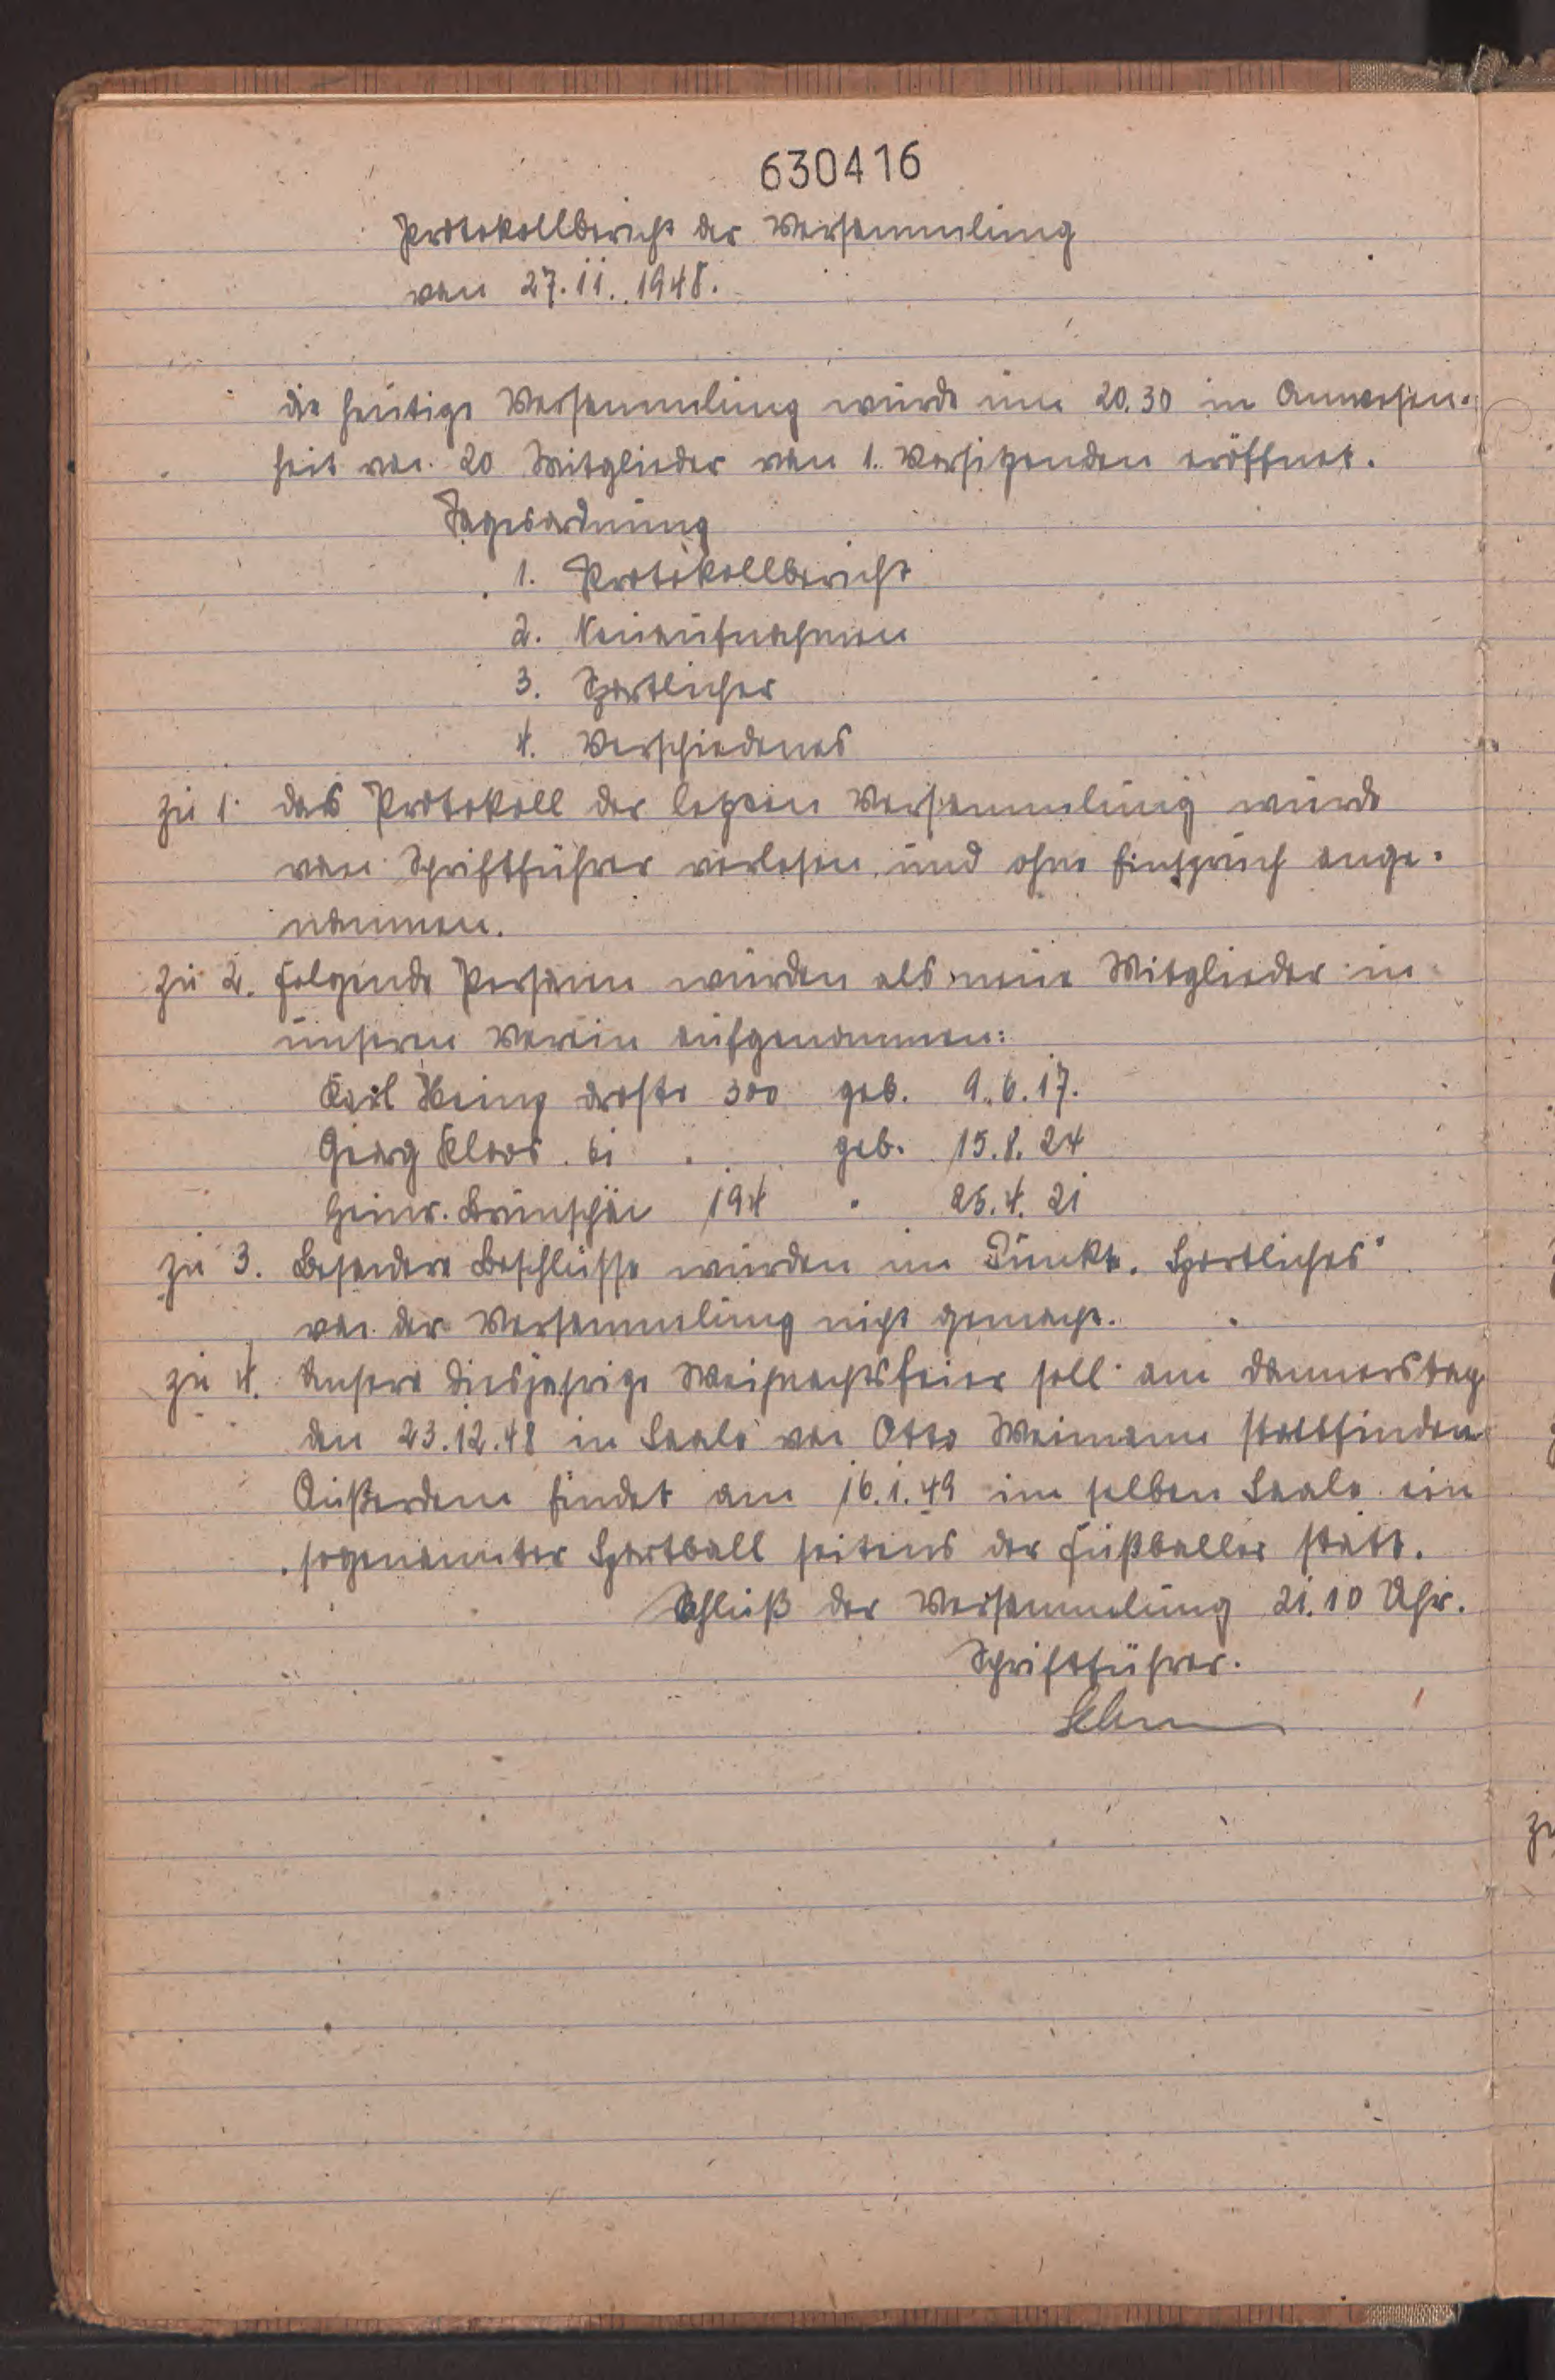 630416
Protokollbericht der Versammlung
vom 27.11.1948.
die heutige Versammlung wurde um 20.30 in Anwesen-
heit von 20 Mitglieder vom 1. Vorsitzenden eröffnet.
Tagesordnung
1. Protokollbericht
2. Neuaufnahmen
3. Sportliches
4. Verschiedenes
zu 1. das Protokoll der letzten Versammlung wurde
vom Schriftführer verlesen und ohne Einspruch ange-
nommen.
zu 2. folgende Personen wurden als neue Mitglieder in
unseren Verein aufgenommen:
Karl Heinz droste 300 geb. 9.6.17.
Georg Kloos 61 geb. 15.8.24
Heinr. 194 " 25.4.21
zu 3. Besondere Beschlüsse wurden im Punkt "Sportliches"
von der Versammlung nicht gemacht.
zu 4. Unsere diesjahrige Weihnachtsfeier soll am donnerstag
den 23.12.48 im Saale von Otto Weimann stattfinden
Außerdem findet am 16.1.49 im selben Saale ein
sogenannter Sportball seitens der Fußballer statt.
Schluß der Versammlung 21.10 Uhr.
Schriftführer.
zu